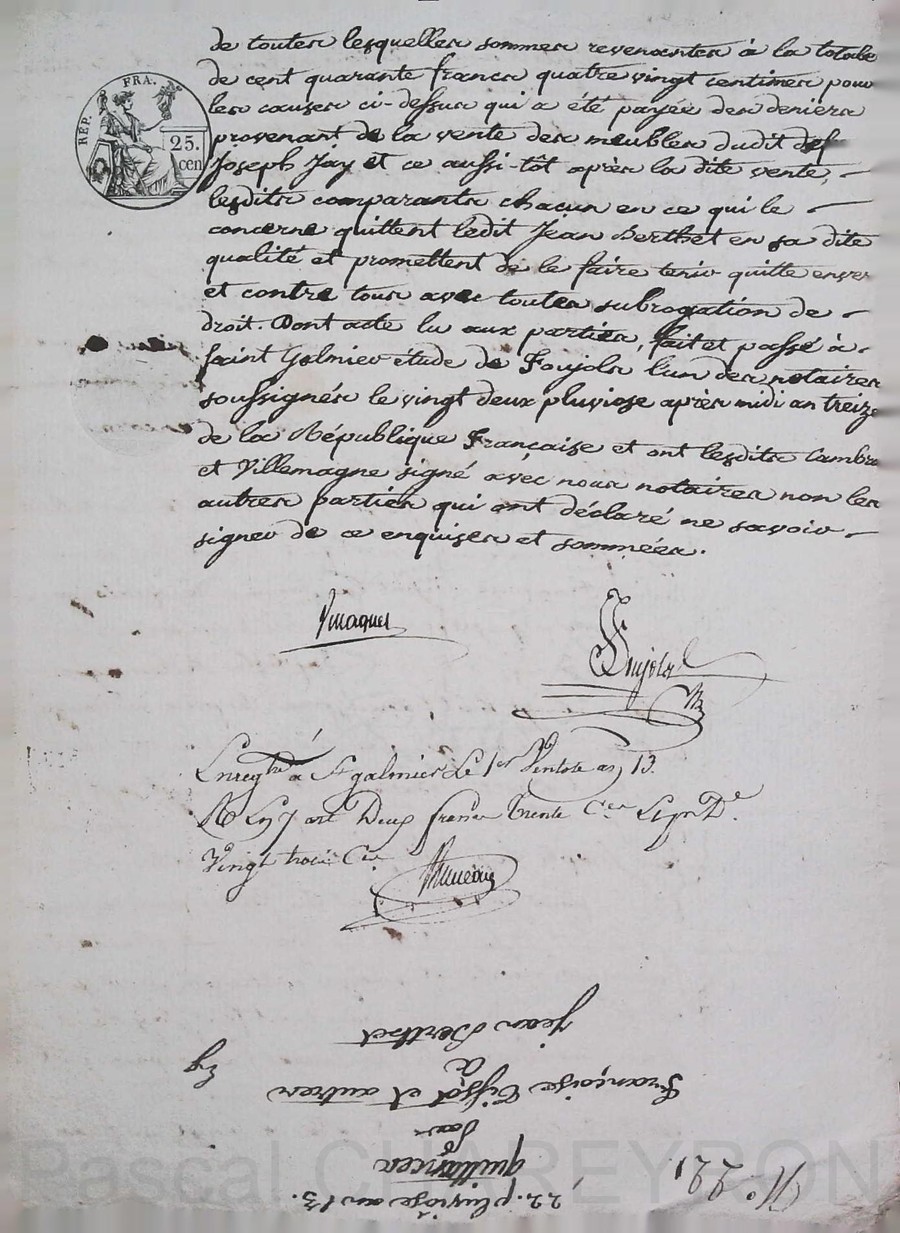 de toutes lesquelles sommes revenantes à la totale
de cent quarante francs quatre vingt centimes pour
les causes ci-dessus qui a été payée des deniers
provenant de la vente des meubles dudit def
Joseph Jay et ce aussi-tôt après la dite vente,
lesdits comparants chacun en ce qui le
concerne quittent ledit Jean Berthet en sa dite
qualité et promettent de le faire tenir quitte envers
et contre tous avec toutes subrogation de
droit. Dont acte lu aux parties, fait et passé à
Saint Galmier étude de Foujols l'un des notaires
soussignés le vingt deux pluviose après midi an treize
de la République Française et ont lesdits
et Villemagne signé avec nous notaires non les
autres parties qui ont déclaré ne savoir
signer de ce enquises et sommées.
RÉP. FRA.
25.
cen
Foujols
Enregtré à St galmier Le 1er Ventose an 13.
Deux francs trente Ces
Vingt trois Ces
Nº. 221
22. pluviose an 13.
quittances
Par
Françoise Tissot et autres
à
Jean Berthet
Pascal CHAREYRON